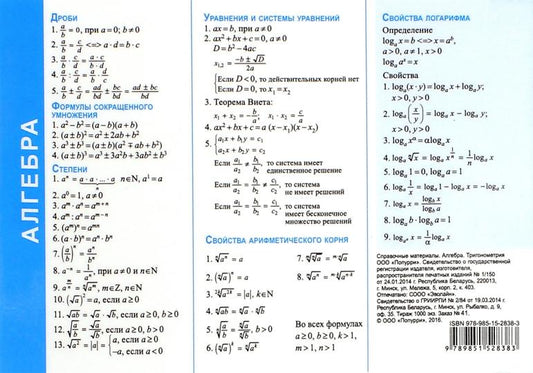 АЛГЕБРА
ДРОБИ
1. a/b = 0, при a=0; b≠0
2. a/b = c/d <=> a·d=b·c
3. a/b · c/d = a·c/b·d
4. a/b : c/d = a·d/b·c
5. a/b ± c/d = ad/bd ± bc/bd = ad±bc/bd
ФОРМУЛЫ СОКРАЩЕННОГО
УМНОЖЕНИЯ
1. a²−b²=(a−b)(a+b)
2. (a±b)²=a²±2ab+b²
3. a³±b³=(a±b)(a²∓ab+b²)
4. (a±b)³=a³±3a²b+3ab²±b³
СТЕПЕНИ
1. aⁿ = a·a·...·a n∈N, a¹=a
n
2. a⁰=1, a≠0
3. aᵐ·aⁿ=aᵐ⁺ⁿ
4. aᵐ:aⁿ=aᵐ⁻ⁿ
5. (aᵐ)ⁿ=aᵐⁿ
6. (a·b)ⁿ=aⁿ·bⁿ
7. (a/b)ⁿ = aⁿ/bⁿ
8. a⁻ⁿ = 1/aⁿ, при a≠0 и n∈N
10. (√a)²=a, если a≥0
11. √ab=√a·√b, если a≥0, b≥0
12. √(a/b) = √a/√b, если a≥0, b>0
13. √a² = |a| = { a, если a≥0
−a, если a<0
УРАВНЕНИЯ И СИСТЕМЫ УРАВНЕНИЙ
1. ax=b, при a≠0
2. ax²+bx+c=0, a≠0
D=b²−4ac
x₁,₂ = −b±√D/2a
Если D<0, то действительных корней нет
Если D=0, то x₁=x₂
3. Теорема Виета:
x₁+x₂=−b/a; x₁·x₂=c/a
4. ax²+bx+c=a(x−x₁)(x−x₂)
5. { a₁x+b₁y=c₁
a₂x+b₂y=c₂
Если a₁/a₂ ≠ b₁/b₂, то система имеет
единственное решение
Если a₁/a₂ = b₁/b₂ ≠ c₁/c₂, то система
не имеет решений
Если a₁/a₂ = b₁/b₂ = c₁/c₂, то система
имеет бесконечное
множество решений
СВОЙСТВА АРИФМЕТИЧЕСКОГО КОРНЯ
Во всех формулах
a≥0, b≥0, k>1,
m>1, n>1
СВОЙСТВА ЛОГАРИФМА
Определение
logₐx=b<=>x=aᵇ,
a>0, a≠1, x>0
logₐaˣ=x
Свойства
1. logₐ(x·y)=logₐx+logₐy;
x>0, y>0
2. logₐ(x/y)=logₐx−logₐy;
x>0, y>0
5. logₐ1=0, logₐa=1
Справочные материалы. Алгебра. Тригонометрия
ООО «Попурри». Свидетельство о государственной
регистрации издателя, изготовителя,
распространителя печатных изданий № 1/150
от 24.01.2014 г. Республика Беларусь, 220013,
Отпечатано: ООО
Свидетельство о ГРИИРПИ № 2/84 от 19.03.2014 г.
35. Тираж 1000 экз. Заказ № 41.
© ООО «Попурри», 2016.
ISBN 978-985-15-2838-3
9 789851 528383